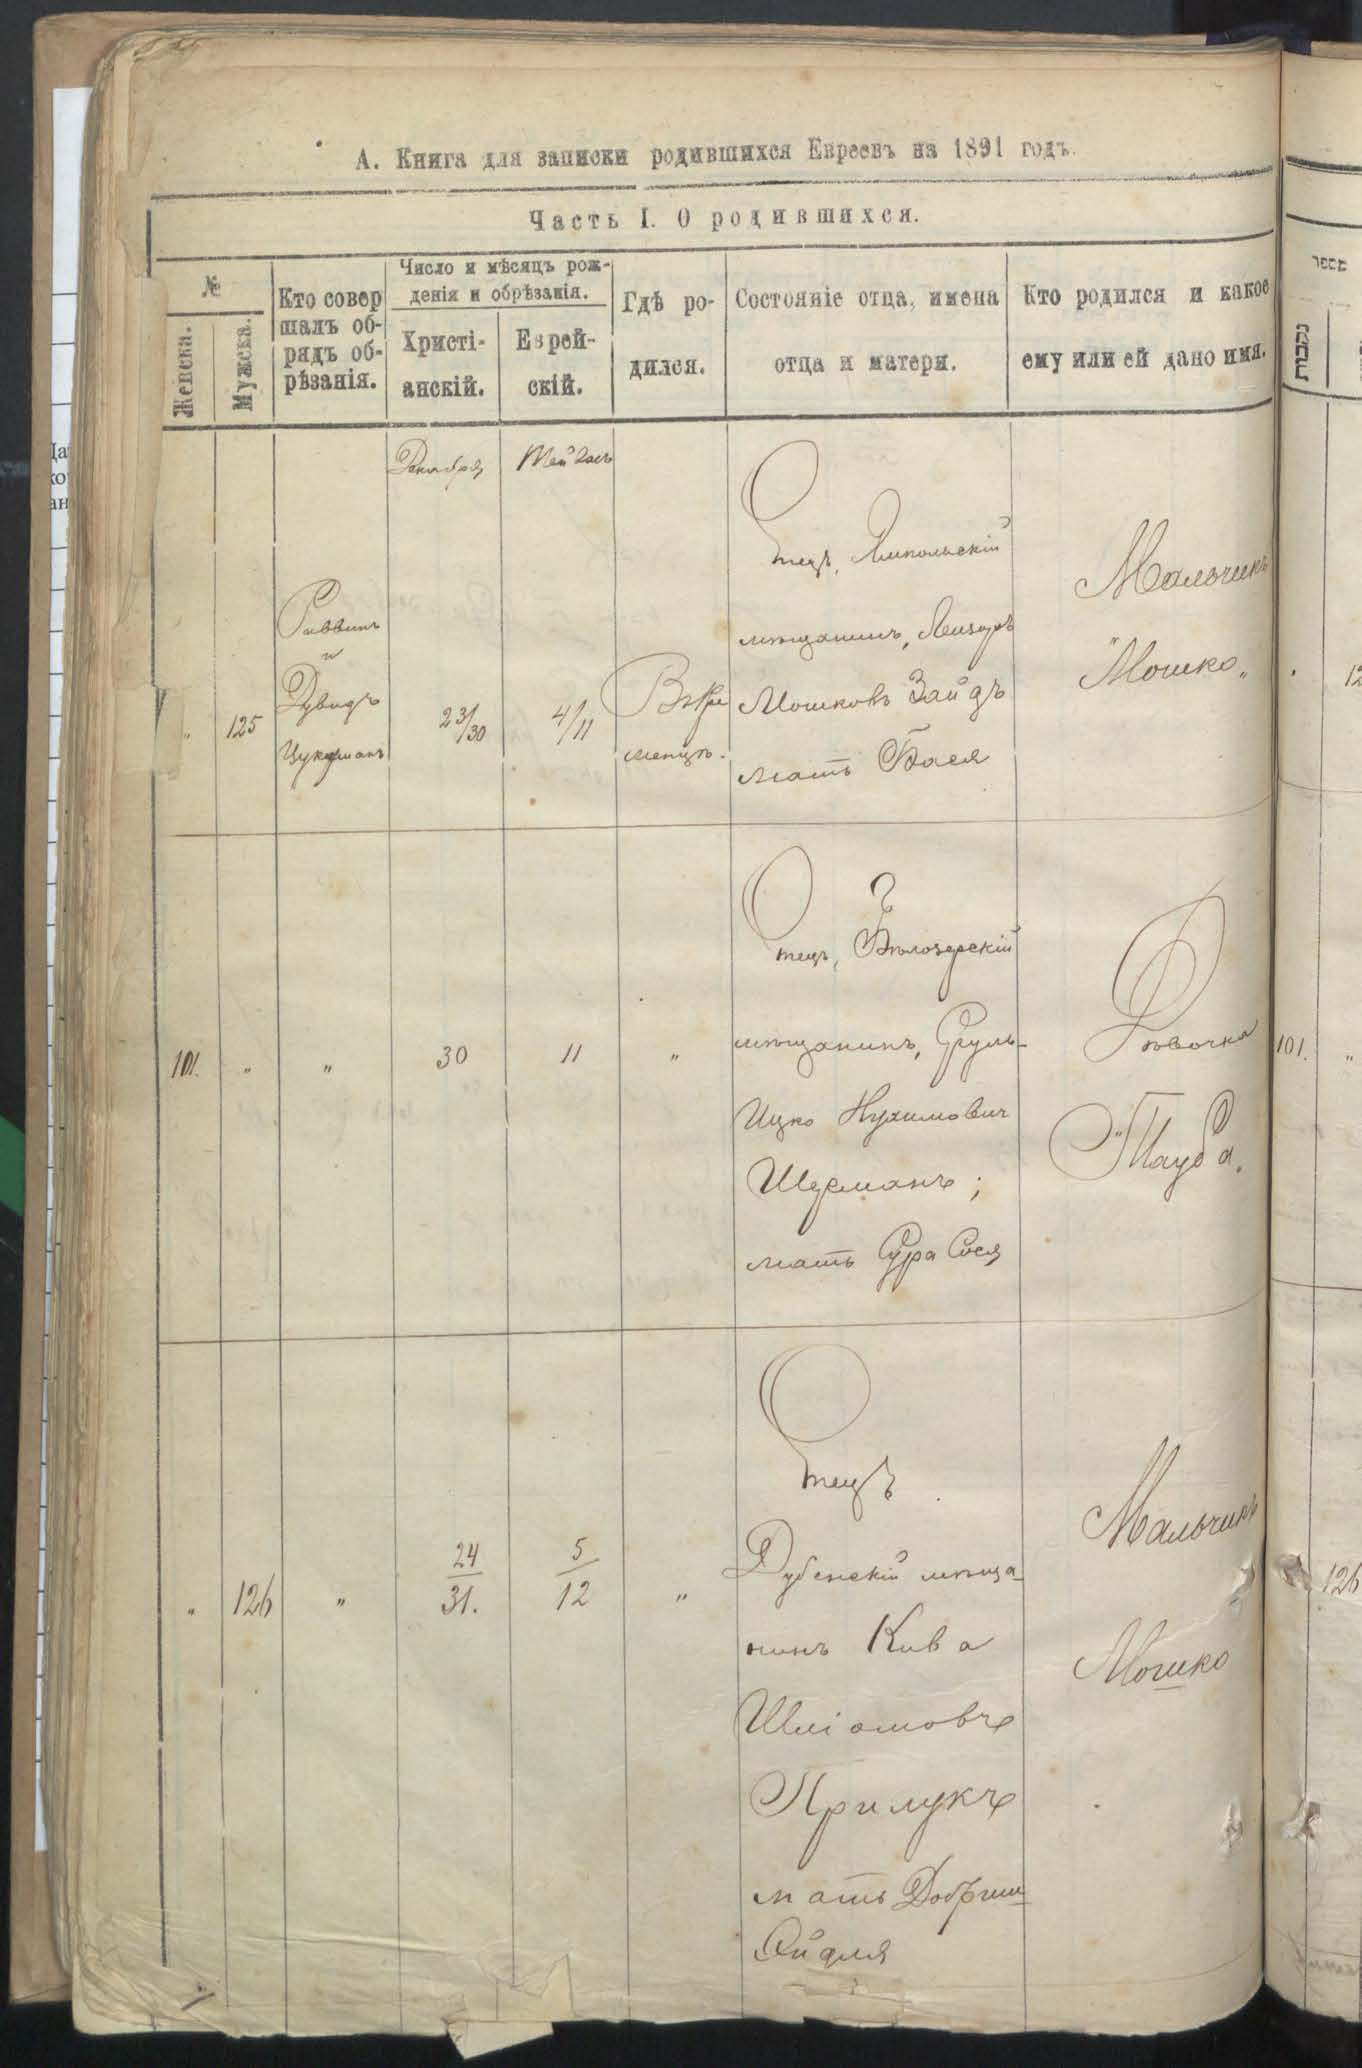 А. Книга для записки родившихся Евреевъ на 1891 годъ.
Часть I. О родившихся.
№
Женска.
Мужска.
Кто совер
шалъ об-
рядъ об-
рѣзанія.
Число и мѣсяцъ рож-
денія и обрѣзанія.
Христі-
анскій.
Еврей-
скій.
Гдѣ ро-
дился.
Состояніе отца, имена
отца и матери.
Кто родился и какое
ему или ей дано имя.
Декабря
Тейвесъ
"
125
Раввинъ
и
Дувидъ
Цукерманъ
23/30
4/11
Въ Кре
менцѣ.
Отецъ, Ямпольскій
мѣщанинъ, Лейзоръ
Мошковъ Зайдъ
мать Бася
Мальчикъ
"Мошко"
101.
"
"
30
11
"
Отецъ, Бѣлозерскій
мѣщанинъ, Сруль-
Ицко Нухимович
Шерманъ;
мать Сура Сося
Дѣвочка
"Тауба"
"
126
"
24
31.
5
12
"
Отецъ
Дубенскій мѣща-
нинъ Кива
Шліомовъ
Прилукъ
мать Добриш-
Айдля
Мальчикъ
Мошко
נקבות
מספר
101.
"
126